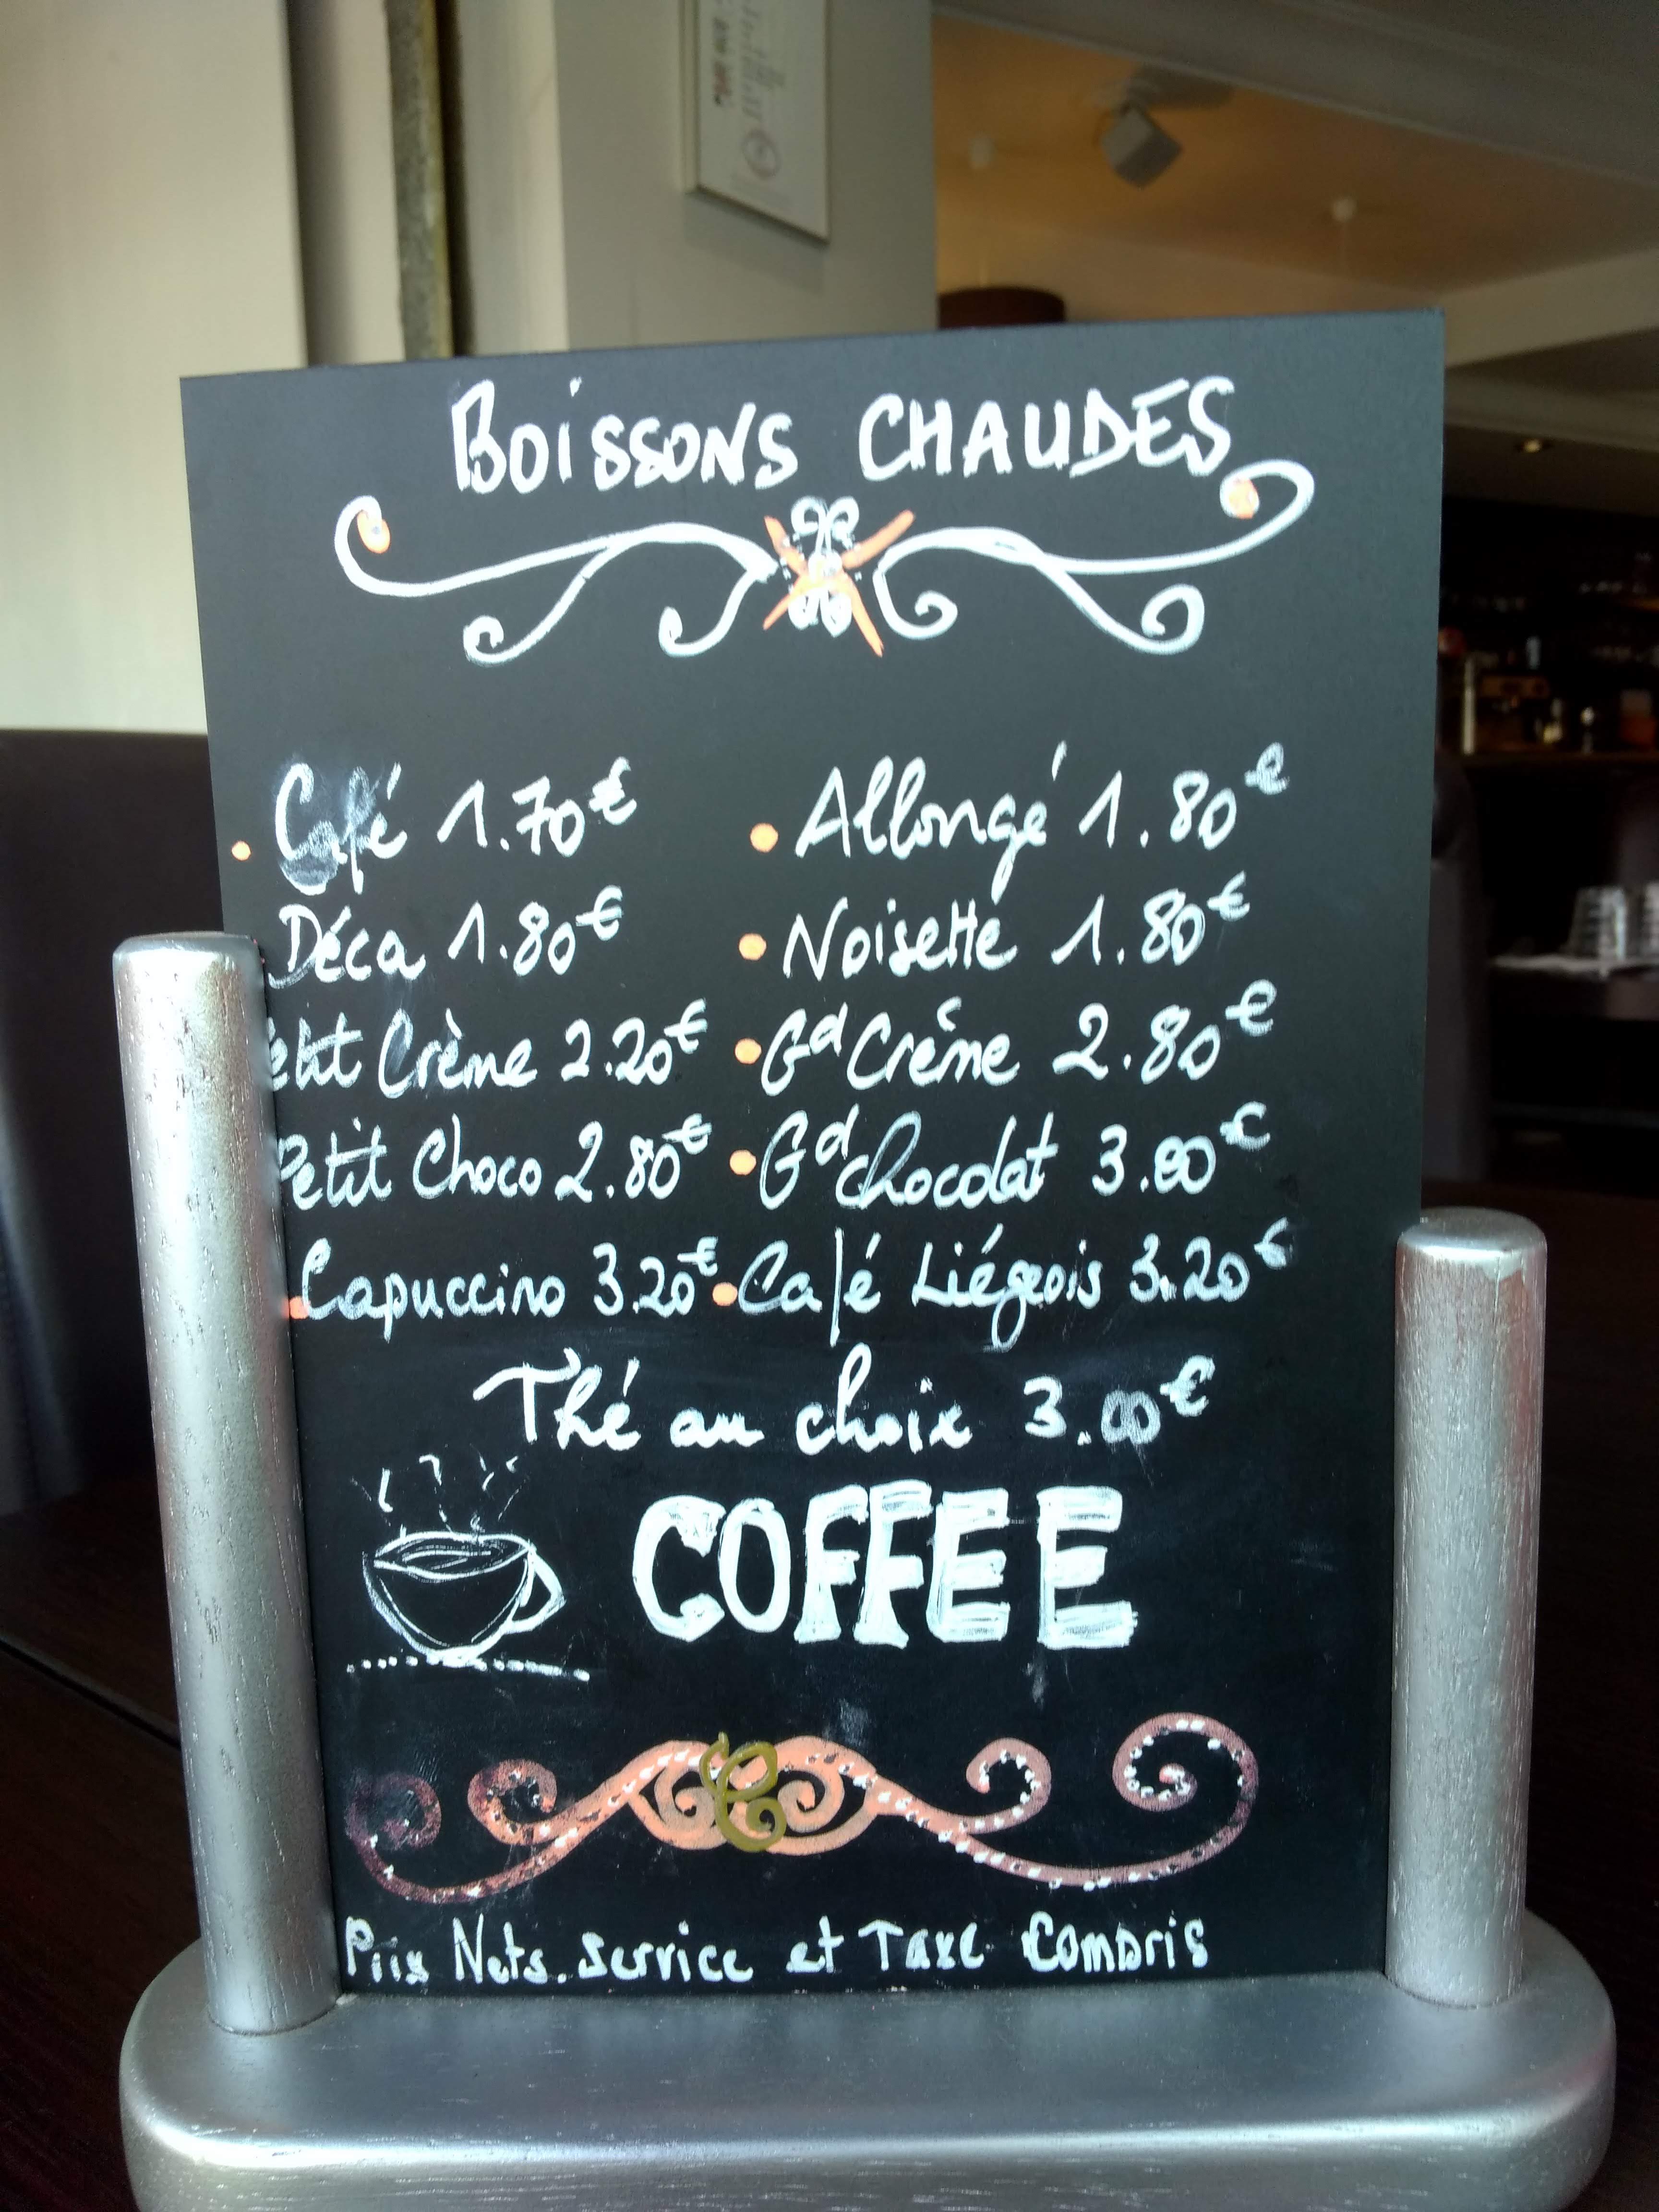 BOISSONS CHAUDES
Café 1.70€ • Allongé 1.80€
Déca 1.80€ • Noisette 1.80€
etit Crème 2.20€ • Gd Crème 2.80€
Petit Choco 2.80€ • Gd chocolat 3.80€
Capuccino 3.20€ • Café Liégeois 3.20€
Thé au choix 3.00€
COFFEE
Prix Nets. Service et Taxe Compris